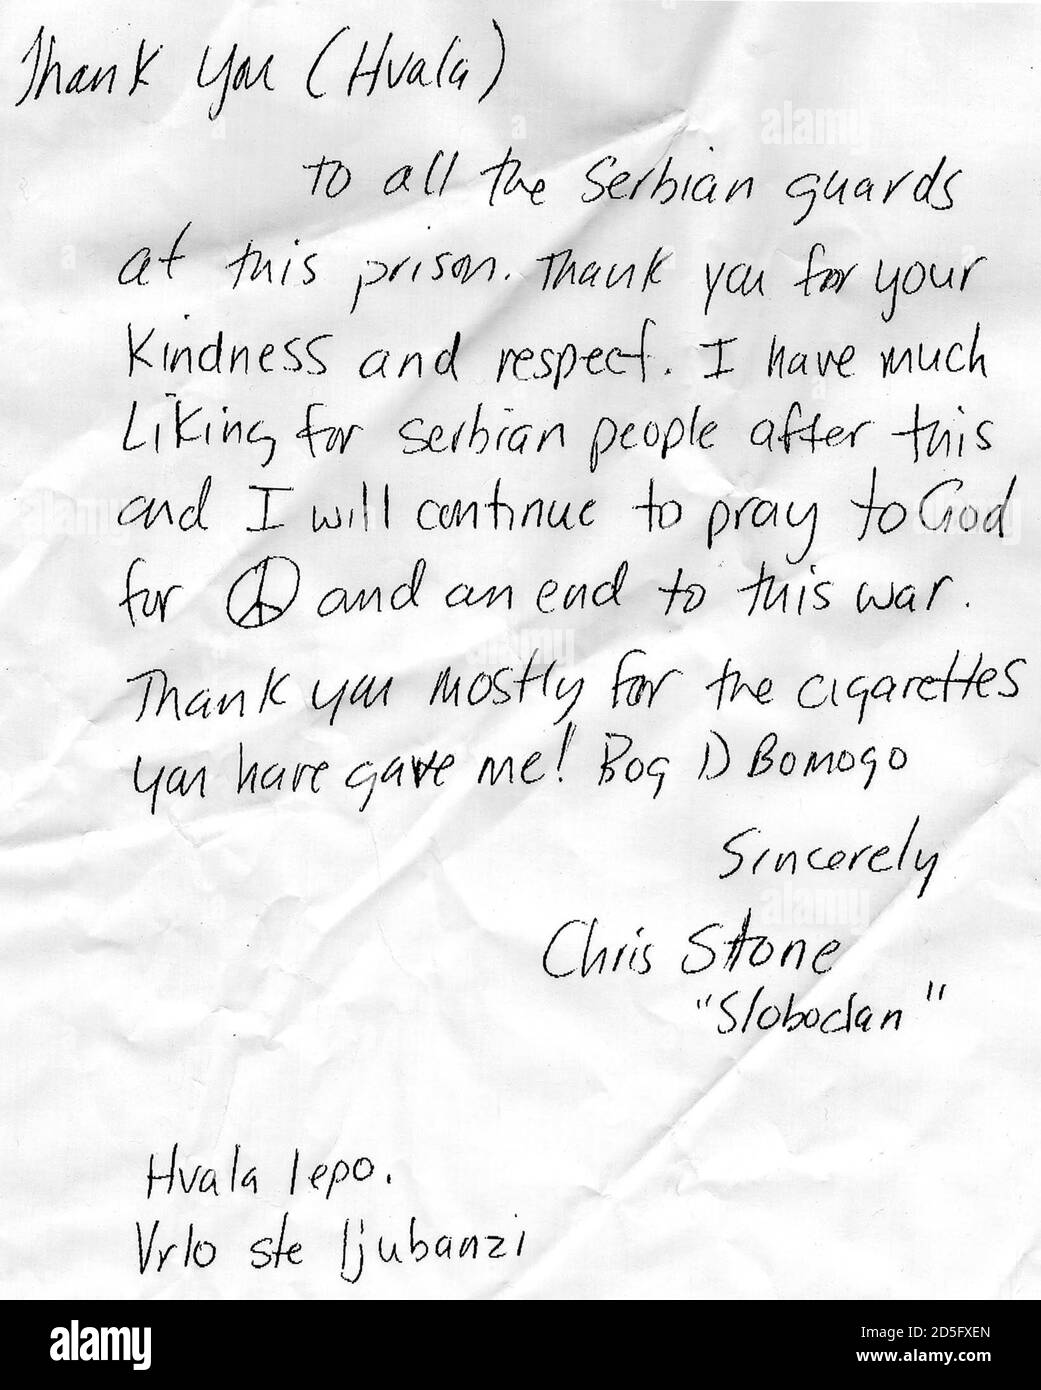 Thank you (Hvala)
to all the Serbian guards
at this prison. Thank you for your
kindness and respect. I have much
liking for serbian people after this
and I will continue to pray to God
for ☮ and an end to this war.
Thank you mostly for the cigarettes
you have gave me! Bog D Bomogo
Sincerely
Chris Stone
"Slobodan"
Hvala lepo.
Vrlo ste ljubanzi
alamy
Image ID: 2D5FXEN
www.alamy.com